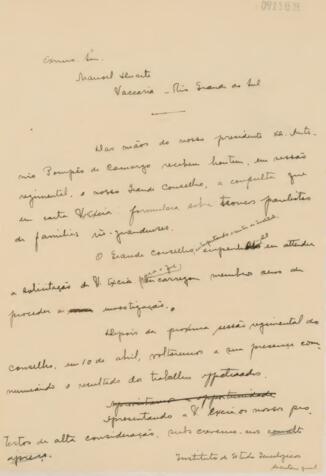 Exmo. Snr.
Manoel Duarte
Vaccaria - Rio Grande do Sul
Das mãos do nosso presidente dr. Anto-
nio Pompêo de Camargo recebeu hontem, em sessão
regimental, o nosso Grande Conselho, a consulta que
em carta V. Excia formulara sobre troncos paulistas
de familias rio-grandenses.
O Grande Conselho, empenhado em attender
a solicitação de V. Excia encarregou membros seus de
proceder a investigação.
Depois da proxima sessão regimental do
Conselho, em 10 de abril, voltaremos a sua presença com-
municando o resultado do trabalho
apresentando a V. Excia os nossos pro-
testos de alta consideração, subscrevemo-nos
apreço.
Instituto de Estudos Genealogicos